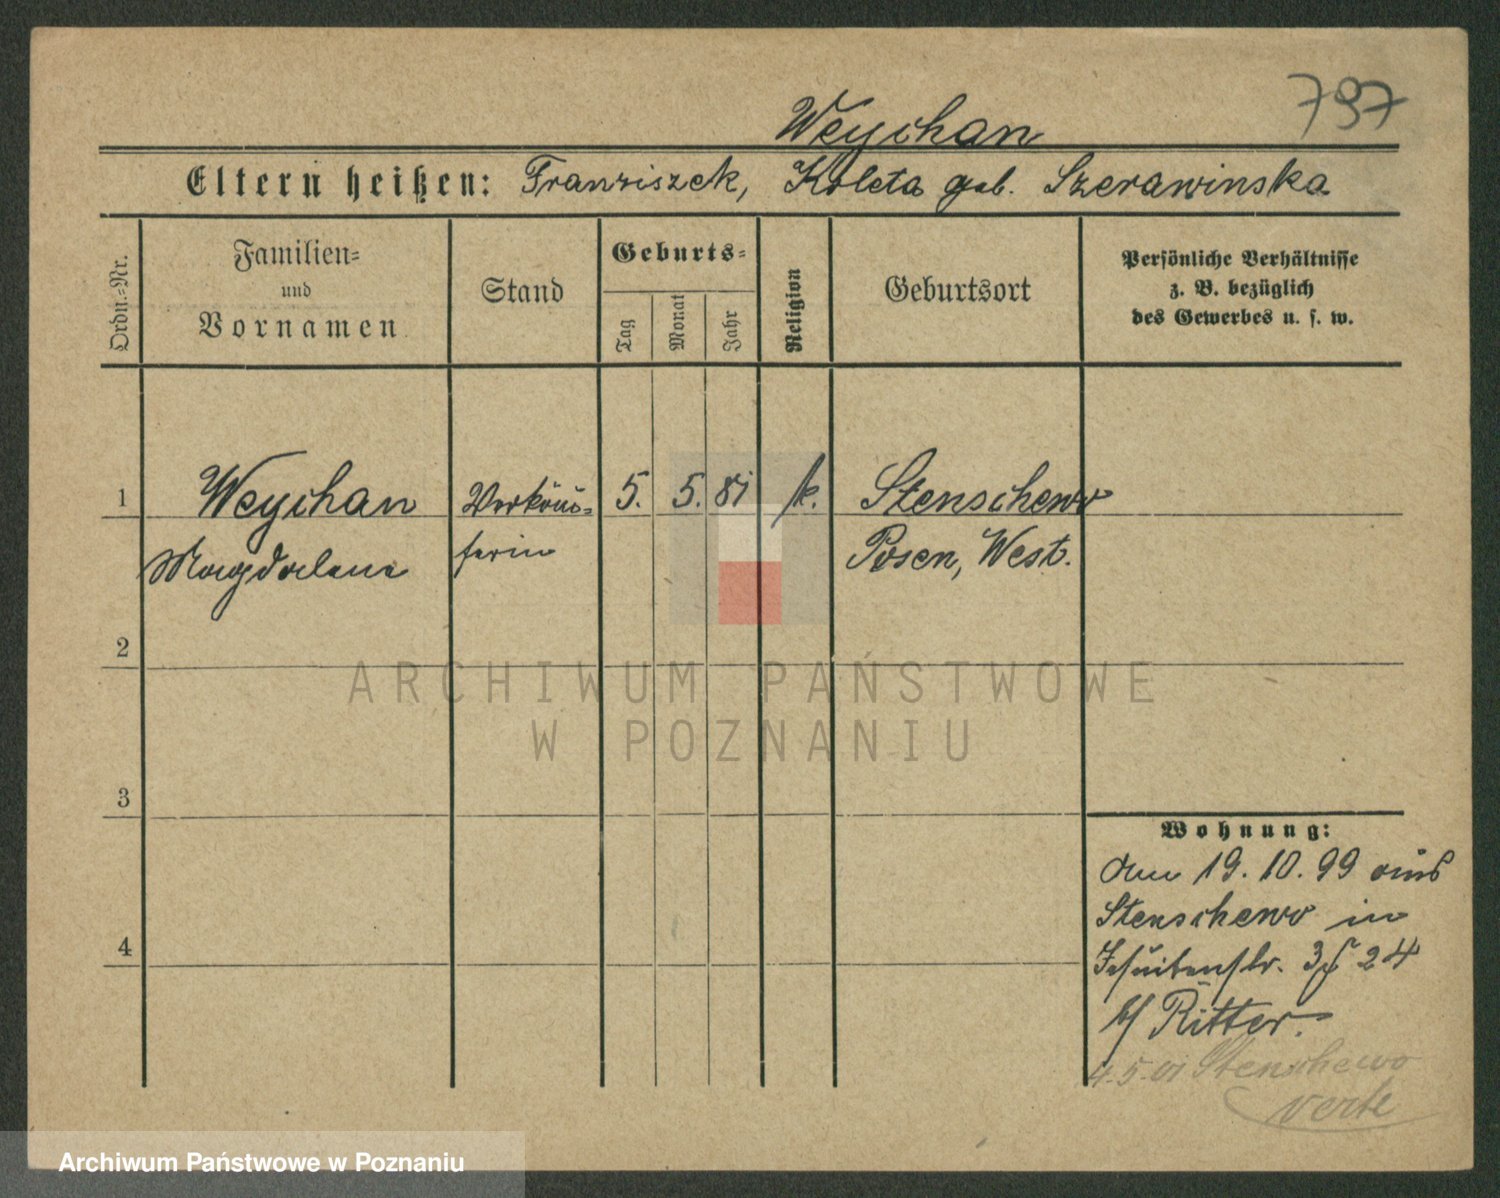 797
Weychan
Eltern heißen: Franziszek, Koleta geb. Szerawinska
Ordn.=Nr.
Familien=
und
Vornamen
Stand
Geburts=
Tag
Monat
Jahr
Religion
Geburtsort
Persönliche Verhältnisse
z. B. bezüglich
des Gewerbes u. s. w.
1
Weychan
Magdalena
Verkäu=
ferin
5. 5. 81
k.
Stenschewo
Posen, West.
2
ARCHIWUM PAŃSTWOWE
W POZNANIU
3
Wohnung:
Am 19. 10. 99 aus
Stenschewo in
Jesuitenstr. 24
b/ Ritter.
4
4.5.01 Stenschewo
verte
Archiwum Państwowe w Poznaniu